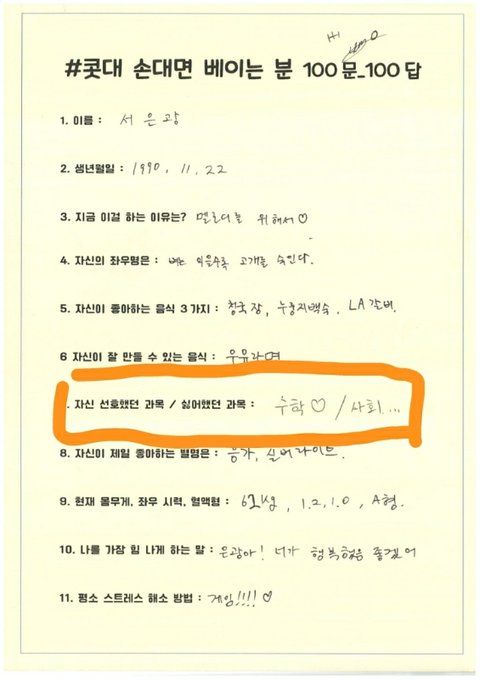 Hi
#콧대 손대면 베이는 분 100문_100답
1. 이름 : 서 은 광
2. 생년월일 : 1990. 11. 22
3. 지금 이걸 하는 이유는? 멜로디를 위해서♡
4. 자신의 좌우명은 : 벼는 익을수록 고개를 숙인다.
5. 자신이 좋아하는 음식 3가지 : 청국장, 누룽지백숙, LA갈비.
6 자신이 잘 만들 수 있는 음식 : 우유라면
. 자신 선호했던 과목 / 싫어했던 과목 : 수학♡ / 사회...
8. 자신이 제일 좋아하는 별명은 : 응가, 실버라이트.
9. 현재 몸무게, 좌우 시력, 혈액형 : 61kg, 1.2, 1.0, A형.
10. 나를 가장 힘 나게 하는 말 : 은광아! 너가 행복했음 좋겠어
11. 평소 스트레스 해소 방법 : 게임!!!! ♡